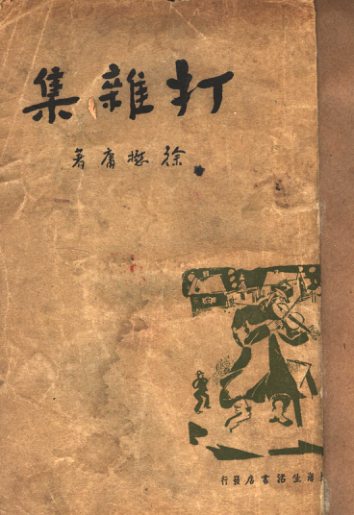 打雜集
徐懋庸著
上海生活書店發行